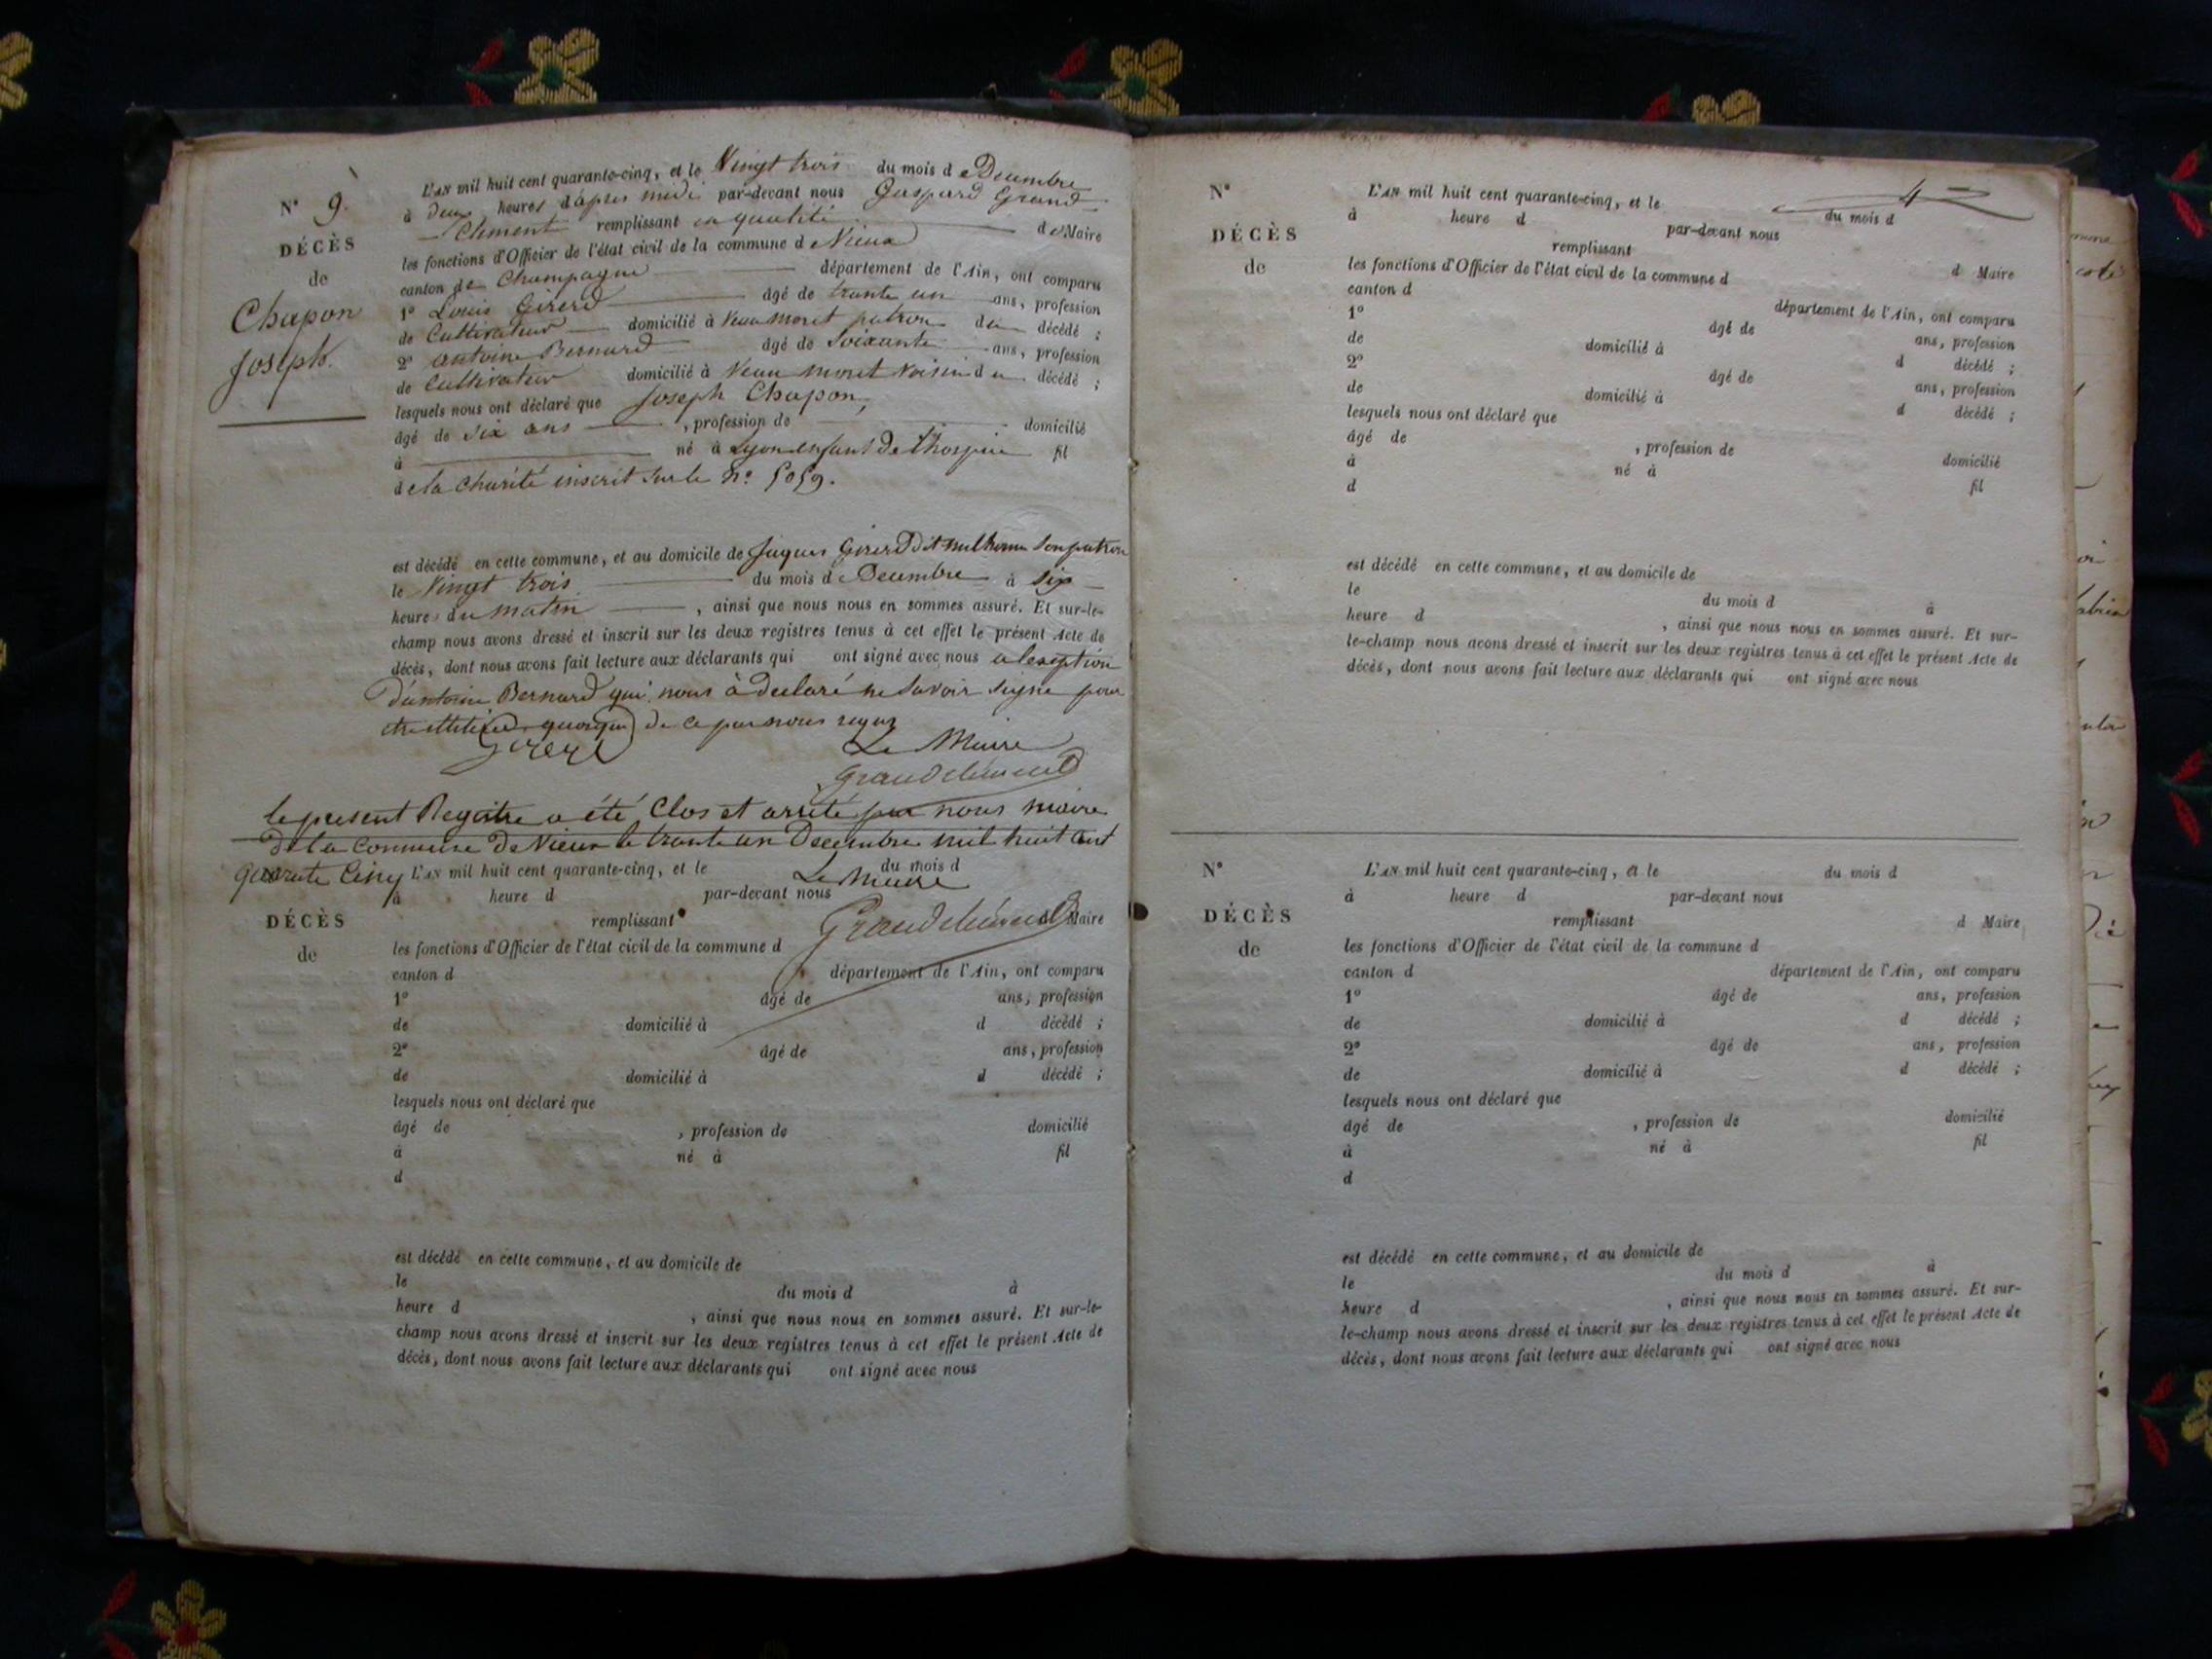 N° 9.
DÉCÈS
de
Chapon
Joseph.
L'AN mil huit cent quarante-cinq, et le Vingt trois du mois de Decembre
à deux heures d'après midi par-devant nous Gaspard Grand
Clément remplissant en qualité de Maire
les fonctions d'Officier de l'état civil de la commune de Vieux
canton de Champagne département de l'Ain, ont comparu
1° Louis Girerd âgé de trente un ans, profession
de Cultivateur domicilié à Veaumoret patron du décédé ;
2° antoine Bernard âgé de Soixante ans, profession
de Cultivateur domicilié à Veau moret voisin du décédé ;
lesquels nous ont déclaré que Joseph Chapon,
âgé de six ans , profession de domicilié
à né à Lyon enfant de l'hospice fil
de la Charité inscrit sur le n° 5059.
est décédé en cette commune, et au domicile de Jaques Girerd dit son patron
le Vingt trois du mois de Decembre à six
heures du matin , ainsi que nous nous en sommes assuré. Et sur-le-
champ nous avons dressé et inscrit sur les deux registres tenus à cet effet le présent Acte de
décès, dont nous avons fait lecture aux déclarants qui ont signé avec nous a lexeption
d'antoine Bernard qui nous à déclaré ne savoir signe pour
de ce par nous requi
Girerd Le Maire
Grand clément
le present Registre a été Clos et arrêté par nous maire
de la Commune de Vieux le trente un Decembre mil huit cent
quarante Cinq L'AN mil huit cent quarante-cinq, et le du mois d
Le Maire
à heure d par-devant nous
DÉCÈS
de
remplissant Grand clément d Maire
les fonctions d'Officier de l'état civil de la commune d
canton d département de l'Ain, ont comparu
1° âgé de ans, profession
de domicilié à d décédé ;
2° âgé de ans, profession
de domicilié à d décédé ;
lesquels nous ont déclaré que
âgé de , profession de domicilié
à né à fil
d
est décédé en cette commune, et au domicile de
le du mois d à
heure d , ainsi que nous nous en sommes assuré. Et sur-le-
champ nous avons dressé et inscrit sur les deux registres tenus à cet effet le présent Acte de
décès, dont nous avons fait lecture aux déclarants qui ont signé avec nous
4
N°
DÉCÈS
de
L'AN mil huit cent quarante-cinq, et le du mois d
à heure d par-devant nous
remplissant d Maire
les fonctions d'Officier de l'état civil de la commune d
canton d département de l'Ain, ont comparu
1° âgé de ans, profession
de domicilié à d décédé ;
2° âgé de ans, profession
de domicilié à d décédé ;
lesquels nous ont déclaré que
âgé de , profession de domicilié
à né à fil
d
est décédé en cette commune, et au domicile de
le du mois d à
heure d , ainsi que nous nous en sommes assuré. Et sur-
le-champ nous avons dressé et inscrit sur les deux registres tenus à cet effet le présent Acte de
décès, dont nous avons fait lecture aux déclarants qui ont signé avec nous
N°
DÉCÈS
de
L'AN mil huit cent quarante-cinq, et le du mois d
à heure d par-devant nous
remplissant d Maire
les fonctions d'Officier de l'état civil de la commune d
canton d département de l'Ain, ont comparu
1° âgé de ans, profession
de domicilié à d décédé ;
2° âgé de ans, profession
de domicilié à d décédé ;
lesquels nous ont déclaré que
âgé de , profession de domicilié
à né à fil
d
est décédé en cette commune, et au domicile de
le du mois d à
heure d , ainsi que nous nous en sommes assuré. Et sur-
le-champ nous avons dressé et inscrit sur les deux registres tenus à cet effet le présent Acte de
décès, dont nous avons fait lecture aux déclarants qui ont signé avec nous